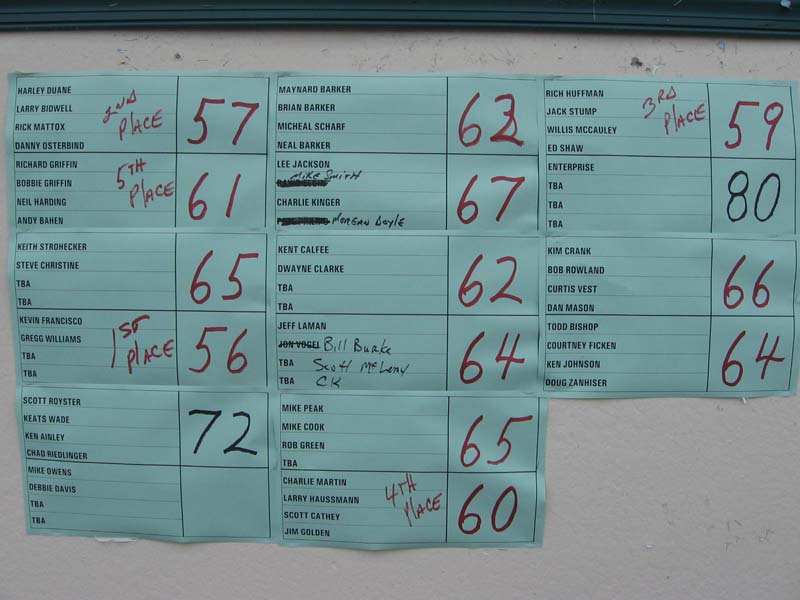 HARLEY DUANE
LARRY BIDWELL
RICK MATTOX
DANNY OSTERBIND
2ND PLACE
57
RICHARD GRIFFIN
BOBBIE GRIFFIN
NEIL HARDING
ANDY BAHEN
5TH PLACE
61
KEITH STROHECKER
STEVE CHRISTINE
TBA
TBA
65
KEVIN FRANCISCO
GREGG WILLIAMS
TBA
TBA
1ST PLACE
56
SCOTT ROYSTER
KEATS WADE
KEN AINLEY
CHAD RIEDLINGER
72
MIKE OWENS
DEBBIE DAVIS
TBA
TBA
MAYNARD BARKER
BRIAN BARKER
MICHEAL SCHARF
NEAL BARKER
63
LEE JACKSON
Mike Smith
CHARLIE KINGER
Morgan Doyle
67
KENT CALFEE
DWAYNE CLARKE
TBA
TBA
62
JEFF LAMAN
JON VOGEL Bill Burke
TBA Scott
TBA CK
64
MIKE PEAK
MIKE COOK
ROB GREEN
TBA
65
CHARLIE MARTIN
LARRY HAUSSMANN
SCOTT CATHEY
JIM GOLDEN
4TH PLACE
60
RICH HUFFMAN
JACK STUMP
WILLIS MCCAULEY
ED SHAW
3RD PLACE
59
ENTERPRISE
TBA
TBA
TBA
80
KIM CRANK
BOB ROWLAND
CURTIS VEST
DAN MASON
66
TODD BISHOP
COURTNEY FICKEN
KEN JOHNSON
DOUG ZANHISER
64